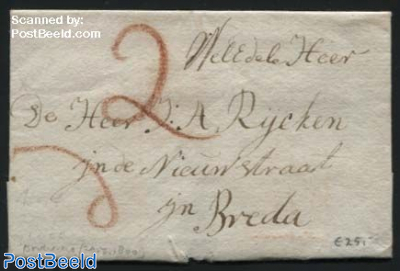 Scanned by:
PostBeeld.com
2
WelEdele Heer
De Heer J: A. Rijcken
jn de Nieuwstraat
jn Breda
€25,-
PostBeeld